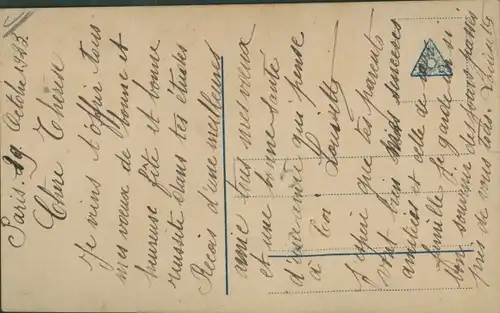 Paris. 29 Octobre 1923.
Chère Thérèse
Je viens t'offrir tous
mes vœux de bonne et
heureuse fête et bonne
réussite dans tes études
Reçois d'une meilleure
amie tous mes vœux
et une bonne santé
d'une amie qui pense
à toi
Louisette
J'espère que tes parents
vont bien mes sincères
amitiés et celle de ma
famille Je garde un si
bon souvenir des jours passés
près de vous tous Louisette